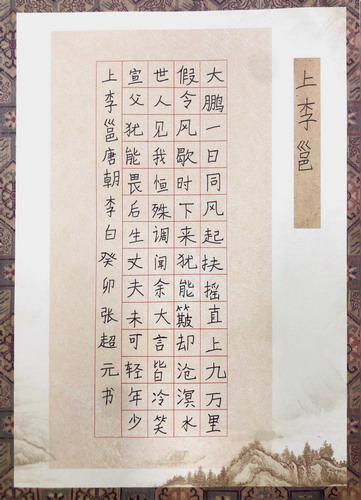 上李邕
大鹏一日同风起扶摇直上九万里
假令风歇时下来犹能簸却沧溟水
世人见我恒殊调闻余大言皆冷笑
宣父犹能畏后生丈夫未可轻年少
上李邕唐朝李白癸卯张超元书